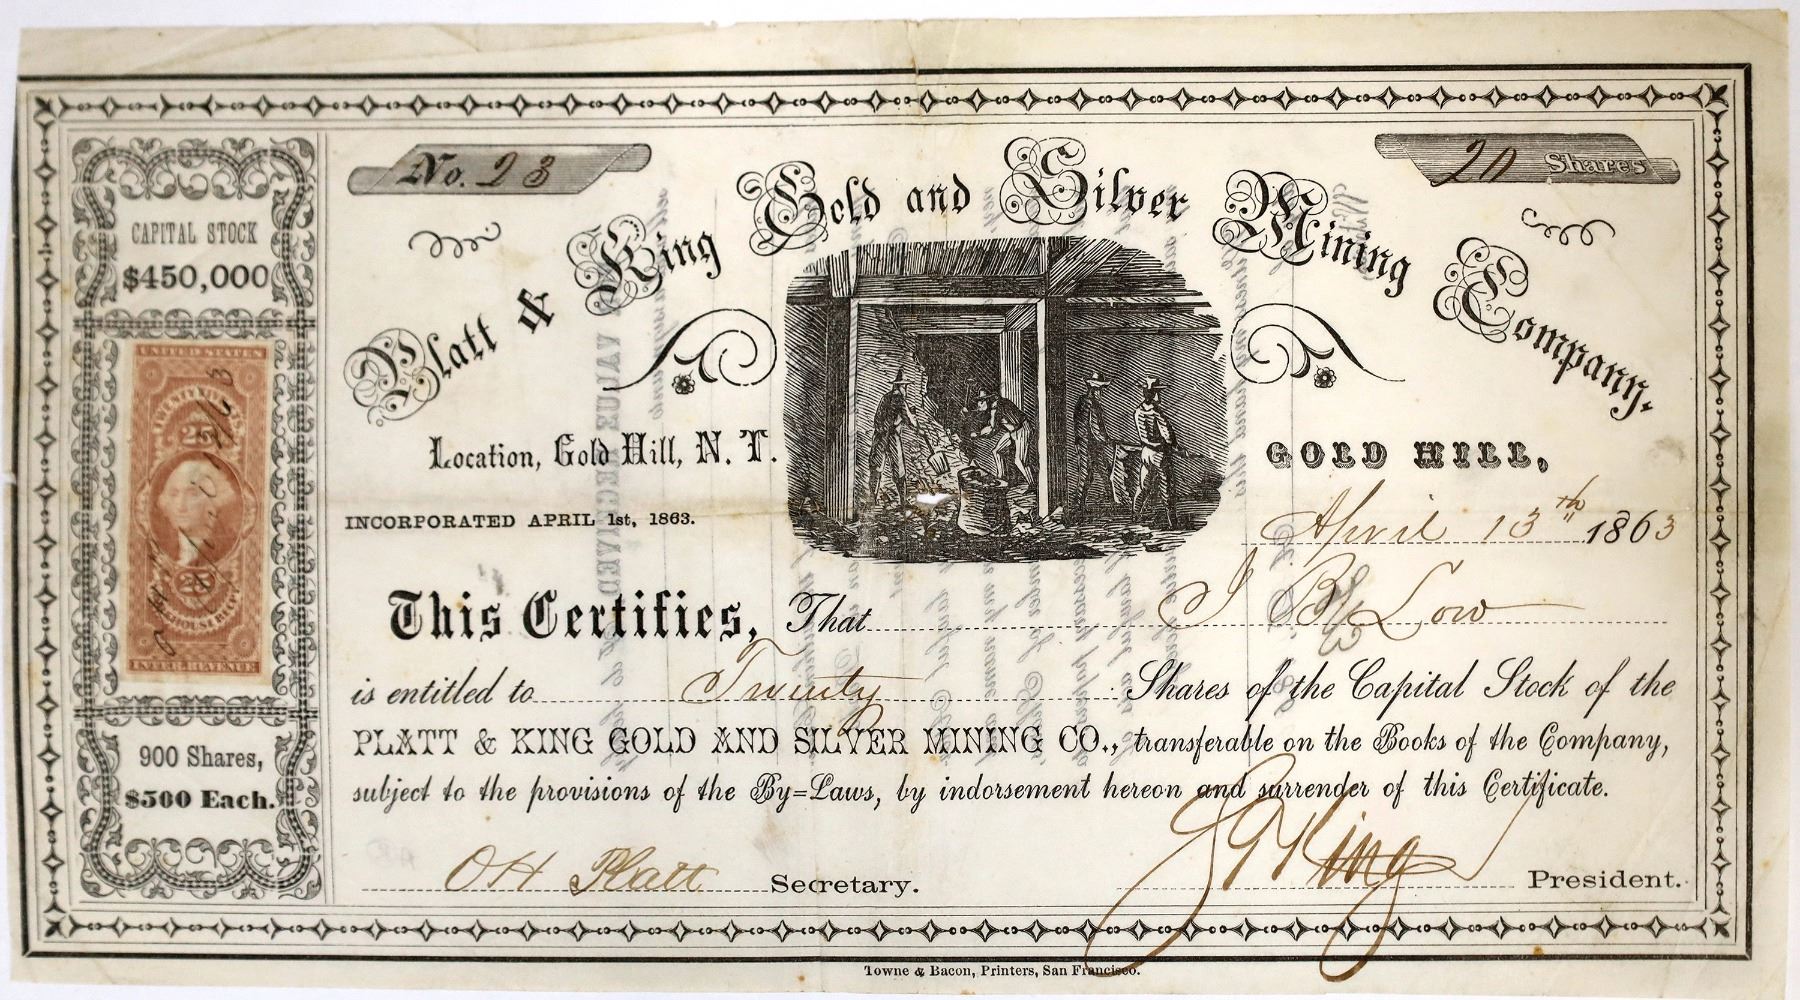 No. 23
20 Shares
Platt & King Gold and Silver Mining Company.
CAPITAL STOCK
$450,000
UNITED STATES
25
25
INTER. REVENUE
900 Shares,
$500 Each.
Location, Gold Hill, N. T.
INCORPORATED APRIL 1st, 1863.
GOLD HILL,
April 13th 1863
This Certifies, That I B Low
is entitled to Twenty Shares of the Capital Stock of the
PLATT & KING GOLD AND SILVER MINING CO., transferable on the Books of the Company,
subject to the provisions of the By=Laws, by indorsement hereon and surrender of this Certificate.
OH Platt Secretary.
King President.
Towne & Bacon, Printers, San Francisco.